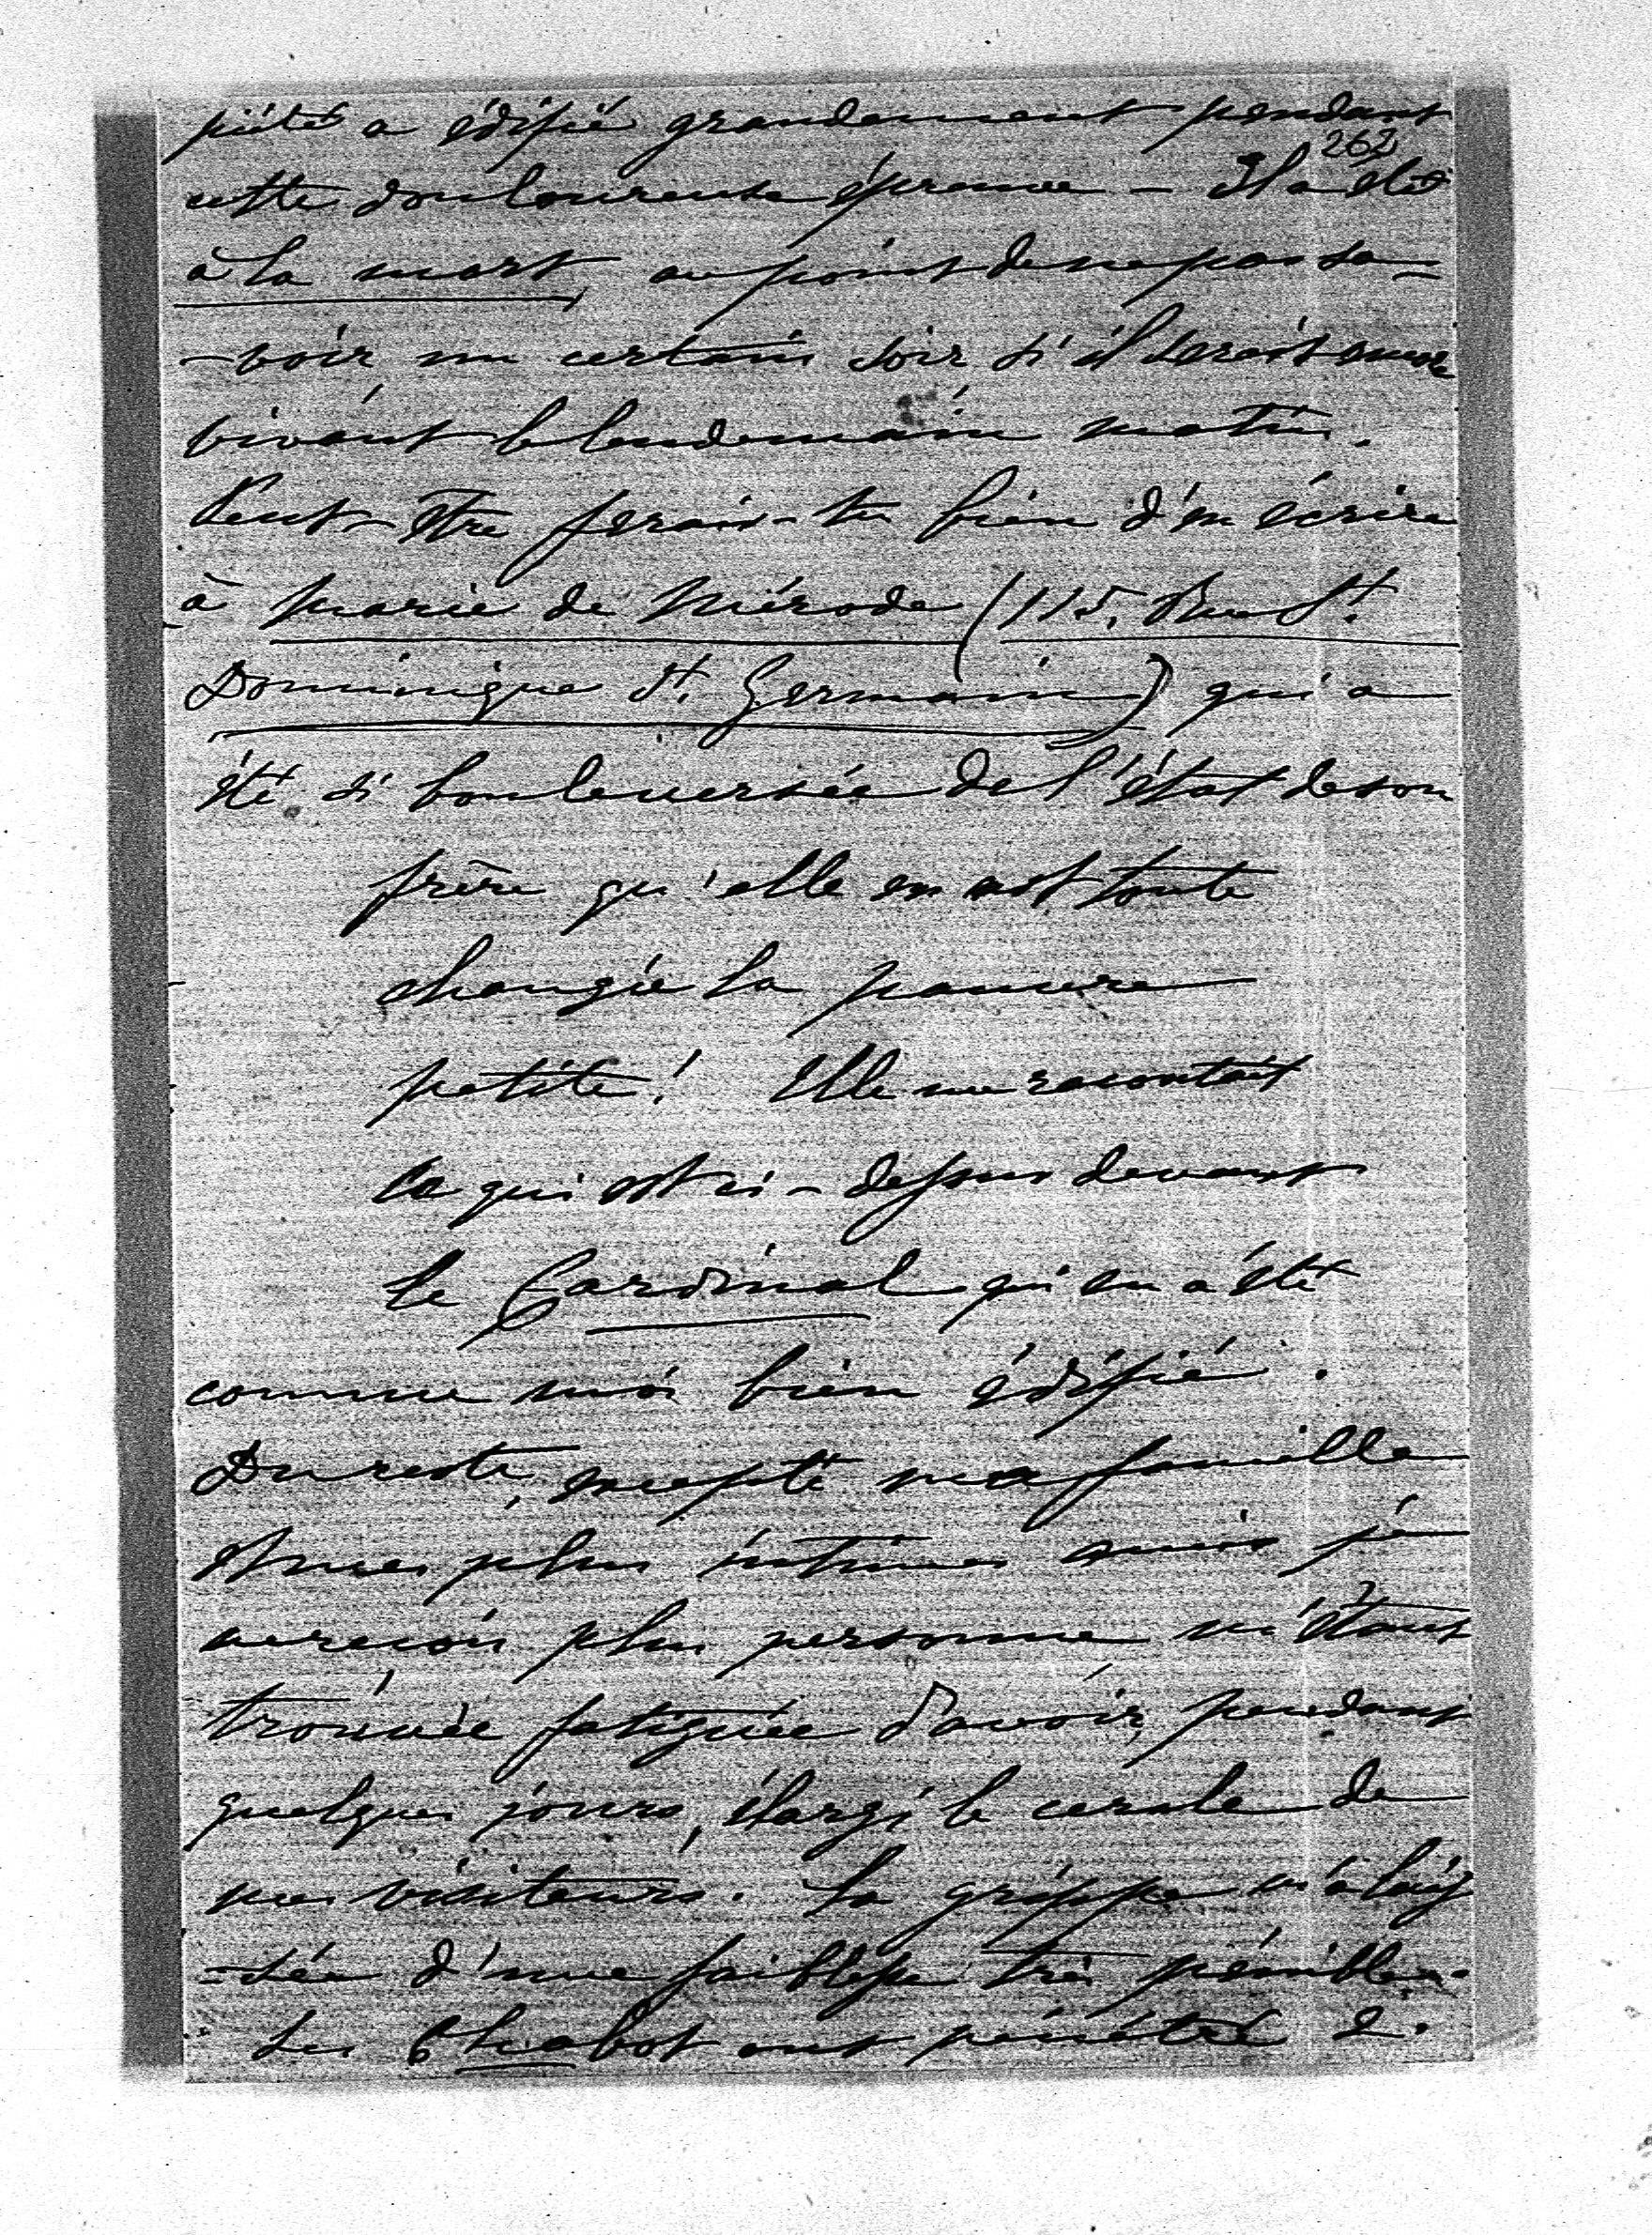 piété a édifié grandement pendant
262
cette douloureuse épreuve – Il a été
à la mort, au point de ne pas sa=
–voir un certain soir s'il serait encore
vivant le lendemain matin.
Peut-être ferais-tu bien d'en écrire
à Marie de Mérode (115, Rue St.
Dominique St. Germain) qui a
été si bouleversée de l'état de son
frère qu'elle en est toute
changée la pauvre
petite! Elle me racontait
ce qui est ci-dessus devant
le Cardinal qui en a été
comme moi bien édifié.
Du reste, excepté ma famille
et mes plus intimes amis je
ne reçois plus personne m'étant
trouvée fatiguée d'avoir, pendant
quelques jours, élargi le cercle de
mes visiteurs. La grippe m'a lais
=sée d'une faiblesse très pénible.
Les Chabot ont